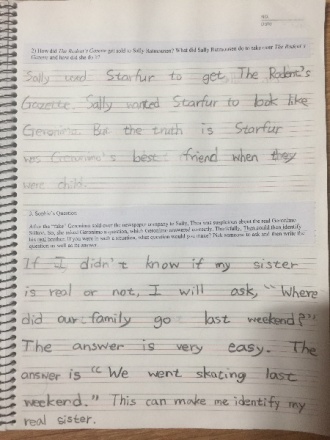 2) How did The Rodent's Gazette get sold to Sally Rasmaussen? What did Sally Rasmaussen do to take over The Rodent's
Gazette and how did she do it?
Sally used Starfur to get, The Rodent's
Gazette. Sally wanted Starfur to look like
Geronimo. But the truth is Starfur
was Geronimo's best friend when they
were child.
3. Question
After the "fake" Geronimo sold over the newspaper company to Sally, Thea was suspicious about the real Geronimo
Stilton. So, she asked Geronimo a question, which Geronimo answered correctly. Thankfully, Thea could then identify
his real brother. If you were in such a situation, what question would you make? Pick someone to ask and then write the
question as well as its answer.
If I didn't know if my sister
is real or not, I will ask, "Where
did our family go last weekend?"
The answer is very easy. The
answer is "We went skating last
weekend." This can make me identify my
real sister.